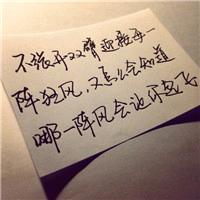 不张开双臂迎接每一
阵狂风，又怎么会知道
哪一阵风会让你起飞